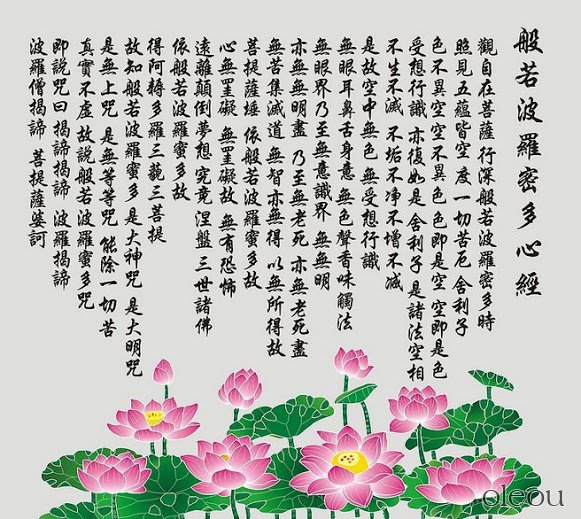 般若波羅密多心經
觀自在菩薩行深般若波羅密多時
照見五蘊皆空 度一切苦厄 舍利子
色不異空 空不異色 色即是空 空即是色
受想行識 亦復如是 舍利子 是諸法空相
不生不滅 不垢不净 不增不减
是故空中無色 無受想行識
無眼耳鼻舌身意 無色聲香味觸法
無眼界 乃至無意識界 無無明
亦無無明盡 乃至無老死 亦無老死盡
無苦集滅道 無智亦無得 以無所得故
菩提薩埵 依般若波羅蜜多故
心無罣礙 無罣礙故 無有恐怖
遠離顛倒夢想 究竟涅盤 三世諸佛
依般若波羅蜜多故
得阿耨多羅三藐三菩提
故知般若波羅蜜多 是大神咒 是大明咒
是無上咒 是無等等咒 能除一切苦
真實不虛 故説般若波羅蜜多咒
即説咒曰 揭諦揭諦 波羅揭諦
波羅僧揭諦 菩提薩婆訶
oleou